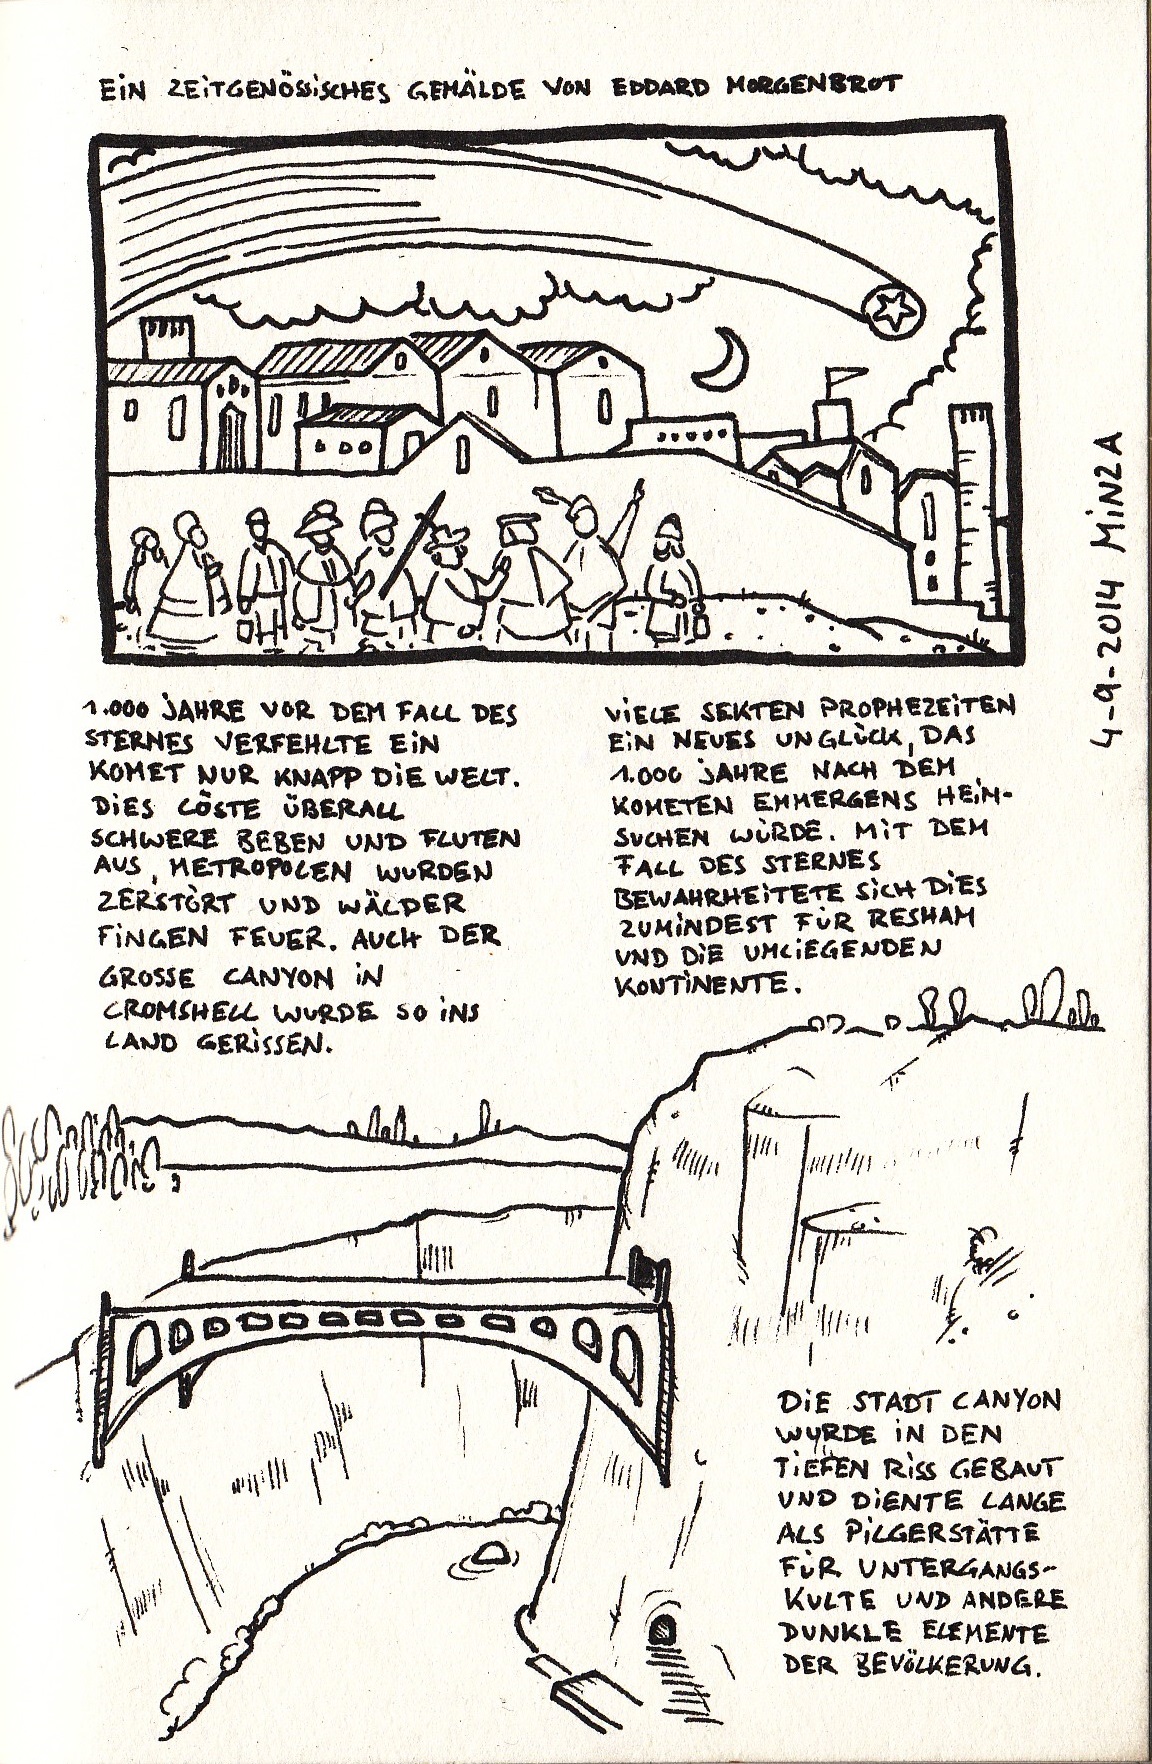 EIN ZEITGENÖSSISCHES GEMÄLDE VON EDDARD MORGENBROT
1.000 JAHRE VOR DEM FALL DES
STERNES VERFEHLTE EIN
KOMET NUR KNAPP DIE WELT.
DIES LÖSTE ÜBERALL
SCHWERE BEBEN UND FLUTEN
AUS, METROPOLEN WURDEN
ZERSTÖRT UND WÄLDER
FINGEN FEUER. AUCH DER
GROSSE CANYON IN
CROMSHELL WURDE SO INS
LAND GERISSEN.
VIELE SEKTEN PROPHEZEITEN
EIN NEUES UNGLÜCK, DAS
1.000 JAHRE NACH DEM
KOMETEN EMMERGENS HEIM-
SUCHEN WÜRDE. MIT DEM
FALL DES STERNES
BEWAHRHEITETE SICH DIES
ZUMINDEST FÜR RESHAM
UND DIE UMLIEGENDEN
KONTINENTE.
DIE STADT CANYON
WURDE IN DEN
TIEFEN RISS GEBAUT
UND DIENTE LANGE
ALS PILGERSTÄTTE
FÜR UNTERGANGS-
KULTE UND ANDERE
DUNKLE ELEMENTE
DER BEVÖLKERUNG.
4-9-2014 MINZA